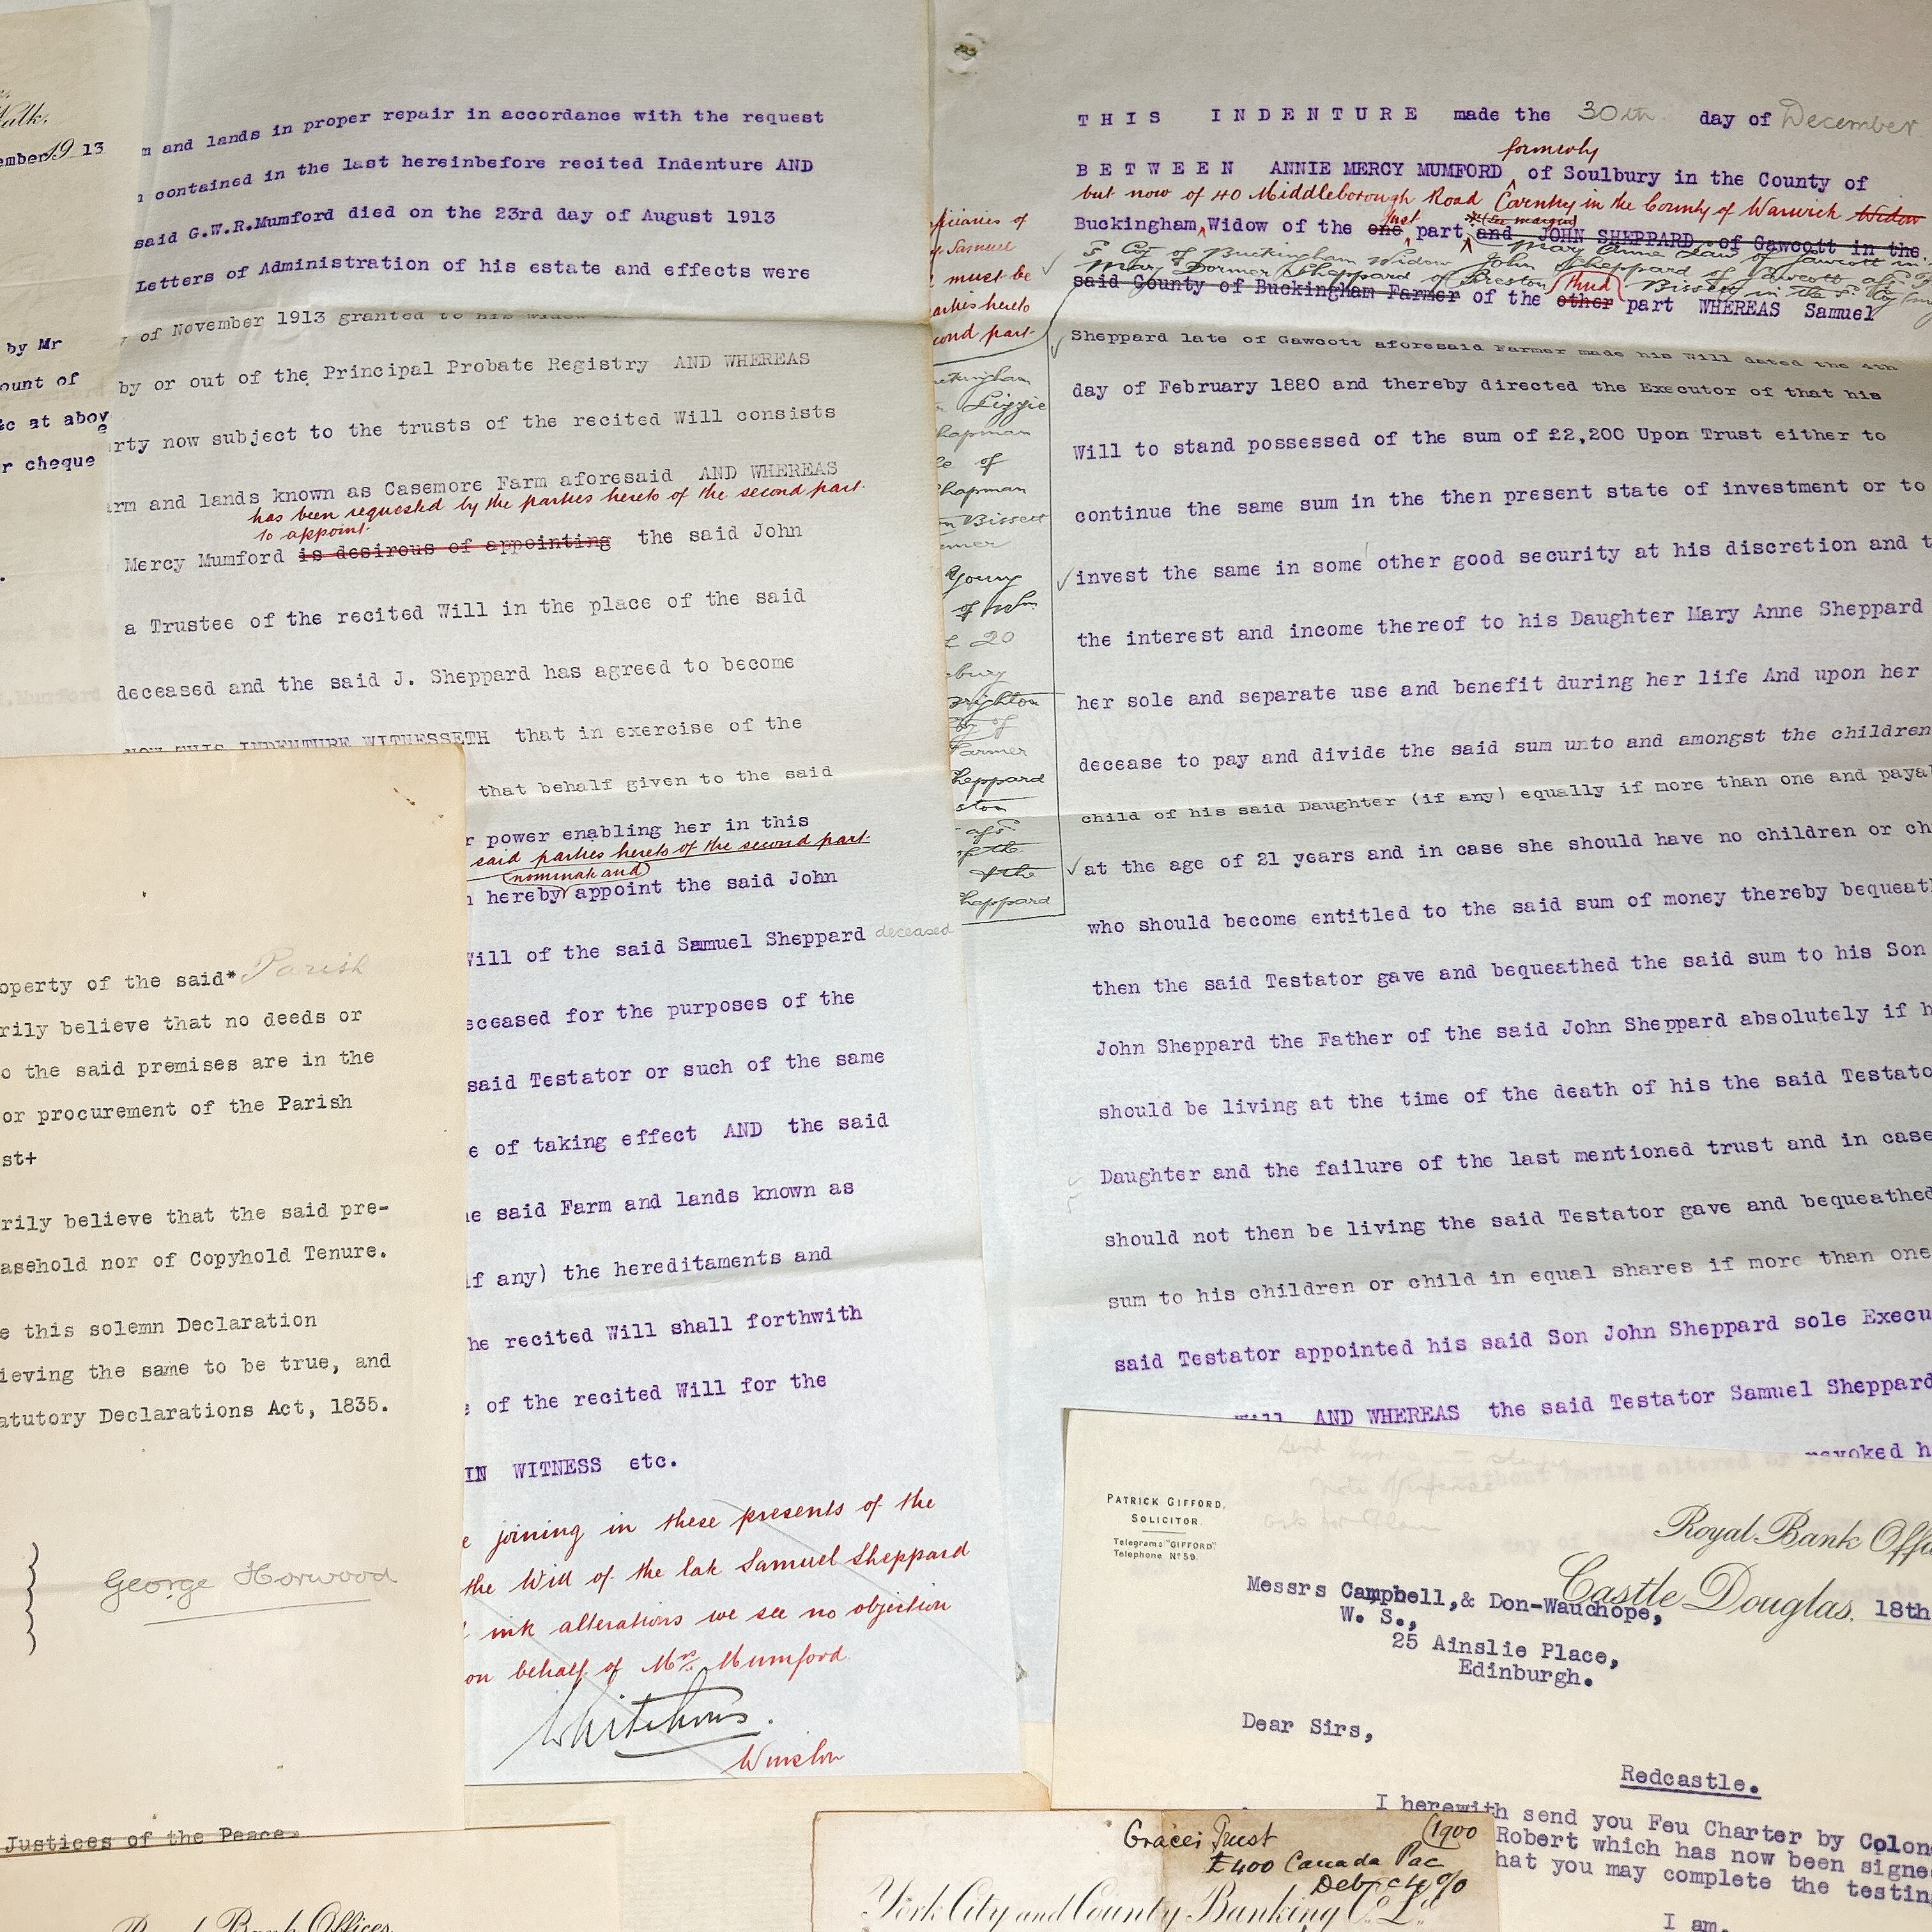 Walk,
ember 19 13
by Mr
ount of
&c at abov
e
r cheque
m and lands in proper repair in accordance with the request
contained in the last hereinbefore recited Indenture AND
said G.W.R.Mumford died on the 23rd day of August 1913
Letters of Administration of his estate and effects were
of November 1913 granted to his widow
by or out of the Principal Probate Registry AND WHEREAS
rty now subject to the trusts of the recited Will consists
rm and lands known as Casemore Farm aforesaid AND WHEREAS
has been requested by the parties hereto of the second part
to appoint
Mercy Mumford is desirous of appointing the said John
a Trustee of the recited Will in the place of the said
deceased and the said J. Sheppard has agreed to become
NOW THIS INDENTURE WITNESSETH that in exercise of the
that behalf given to the said
r power enabling her in this
said parties hereto of the second part
nominate and
hereby appoint the said John
Will of the said Samuel Sheppard deceased
eceased for the purposes of the
said Testator or such of the same
e of taking effect AND the said
he said Farm and lands known as
if any) the hereditaments and
he recited Will shall forthwith
e of the recited Will for the
IN WITNESS etc.
e joining in these presents of the
the Will of the late Samuel Sheppard
ink alterations we see no objection
on behalf of Mrs. Mumford
Winslow
operty of the said* Parish
rily believe that no deeds or
o the said premises are in the
or procurement of the Parish
st+
rily believe that the said pre-
asehold nor of Copyhold Tenure.
e this solemn Declaration
ieving the same to be true, and
atutory Declarations Act, 1835.
George Horwood
Justices of the Peace.
Royal Bank Offices
THIS INDENTURE made the 30th day of December
formerly
BETWEEN ANNIE MERCY MUMFORD of Soulbury in the County of
but now of 40 Middleborough Road Coventry in the County of Warwick Widow
Buckingham Widow of the one first part *(see margin) and JOHN SHEPPARD of Gawcott in the
Mary Anne Law of Gawcott in
Co of Buckingham Widow John Sheppard of Gawcott
Mary Dormer Sheppard of Preston Bissett in the
said County of Buckingham Farmer of the other third part WHEREAS Samuel
Sheppard late of Gawcott aforesaid Farmer made his Will dated the 4th
day of February 1880 and thereby directed the Executor of that his
Will to stand possessed of the sum of £2,200 Upon Trust either to
continue the same sum in the then present state of investment or to
invest the same in some other good security at his discretion and t
the interest and income thereof to his Daughter Mary Anne Sheppard
her sole and separate use and benefit during her life And upon her
decease to pay and divide the said sum unto and amongst the children
child of his said Daughter (if any) equally if more than one and paya
at the age of 21 years and in case she should have no children or ch
who should become entitled to the said sum of money thereby bequeat
then the said Testator gave and bequeathed the said sum to his Son
John Sheppard the Father of the said John Sheppard absolutely if h
should be living at the time of the death of his the said Testato
Daughter and the failure of the last mentioned trust and in case
should not then be living the said Testator gave and bequeathed
sum to his children or child in equal shares if more than one
said Testator appointed his said Son John Sheppard sole Execu
Will AND WHEREAS the said Testator Samuel Sheppard
revoked h
ficiaries of
Samuel
must be
arties hereto
cond part
ckingham
Lizzie
hapman
of
hapman
on Bissett
Young
of
20
bury
righton
of
Farmer
heppard
ston
afsd
of the
& the
heppard
PATRICK GIFFORD,
SOLICITOR.
Telegrams "GIFFORD".
Telephone No 59.
Royal Bank Offi
Castle Douglas, 18th
Messrs Campbell,& Don-Wauchope,
W. S.,
25 Ainslie Place,
Edinburgh.
Dear Sirs,
Redcastle.
I herewith send you Feu Charter by Colon
Robert which has now been signe
hat you may complete the testin
I am,
Graces Trust 1900
£400 Canada Pac
Deb. c 4 %
York City and County Banking Co. Ld